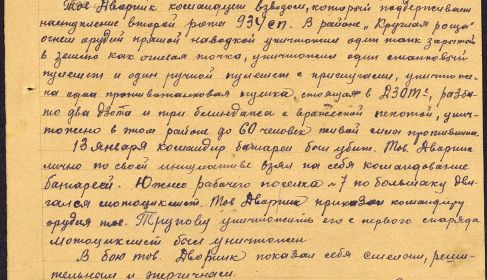 Тов Аварик командуя взводом, который поддерживает
наступление второй роты 934 сп. В районе „Круглая роща"
огнем орудий прямой наводкой уничтожил один танк зарытой
в землю как огневая точка, уничтожил один станковый
пулемет и один ручной пулемет с прислугами, уничтоже-
на одна противотанковая пушка, стоящая в ДЗОТе, разби-
то два дзота и три блиндажа с вражеской пехотой, унич-
тожено в этом районе до 60 человек живой силы противника.
13 января командир батареи был убит. Тов Аварик
лично по своей инициативе взял на себя командование
батареей. Южнее рабочего поселка №7 по большаку дви-
гался мотоциклист. Тов Аварик приказал командиру
орудия тов. уничтожить его с первого снаряда
мотоциклист был уничтожен.
В бою тов. Аварик показал себя смелым, реши-
тельным и энергичным.